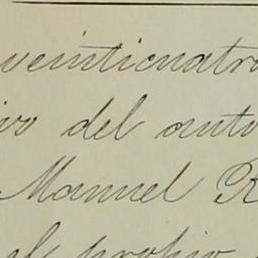 veinticuatro
ivo del auto
Manuel R
el propio